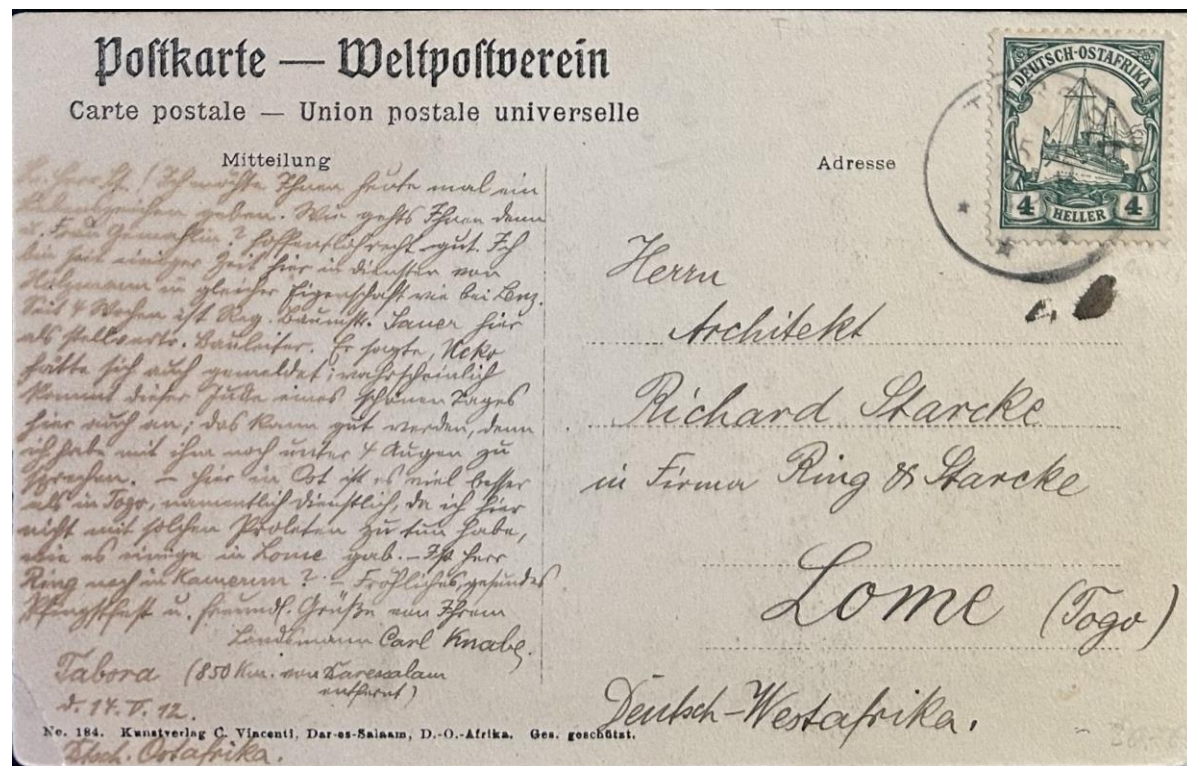 Postkarte — Weltpostverein
Carte postale — Union postale universelle
Mitteilung
Adresse
DEUTSCH-OSTAFRIKA
4 HELLER 4
Ich möchte Ihnen heute mal ein
Lebenszeichen geben. Wie gehts Ihnen denn
u. Frau Gemahlin? Hoffentlich recht gut. Ich
bin seit einiger Zeit hier in Diensten von
Holzmann in gleicher Eigenschaft wie bei Lenz.
Seit 4 Wochen ist Reg. Baumstr. Sauer hier
als stellvertr. Bauleiter. Er sagte,
hätte sich auch gemeldet; wahrscheinlich
kommt dieser eines schönen Tages
hier auch an; das kann gut werden, denn
ich habe mit ihm noch unter 4 Augen zu
sprechen. – Hier in Ost ist es viel besser
als in Togo, namentlich dienstlich, da ich hier
nicht mit solchen Proleten zu tun habe,
wie es einige in Lome gab. – Ist Herr
Ring noch in Kamerun? – Fröhliches, gesundes
Pfingstfest u. freundl. Grüße von Ihrem
Landsmann Carl Knabe.
Tabora (850 Km. von Daressalam
entfernt)
d. 14. V. 12.
No. 184. Kunstverlag C. Vincenti, Dar-es-Salaam, D.-O.-Afrika. Ges. geschützt.
Dtsch. Ostafrika.
Herrn
Architekt
Richard Starcke
in Firma Ring & Starcke
Lome (Togo)
Deutsch-Westafrika.